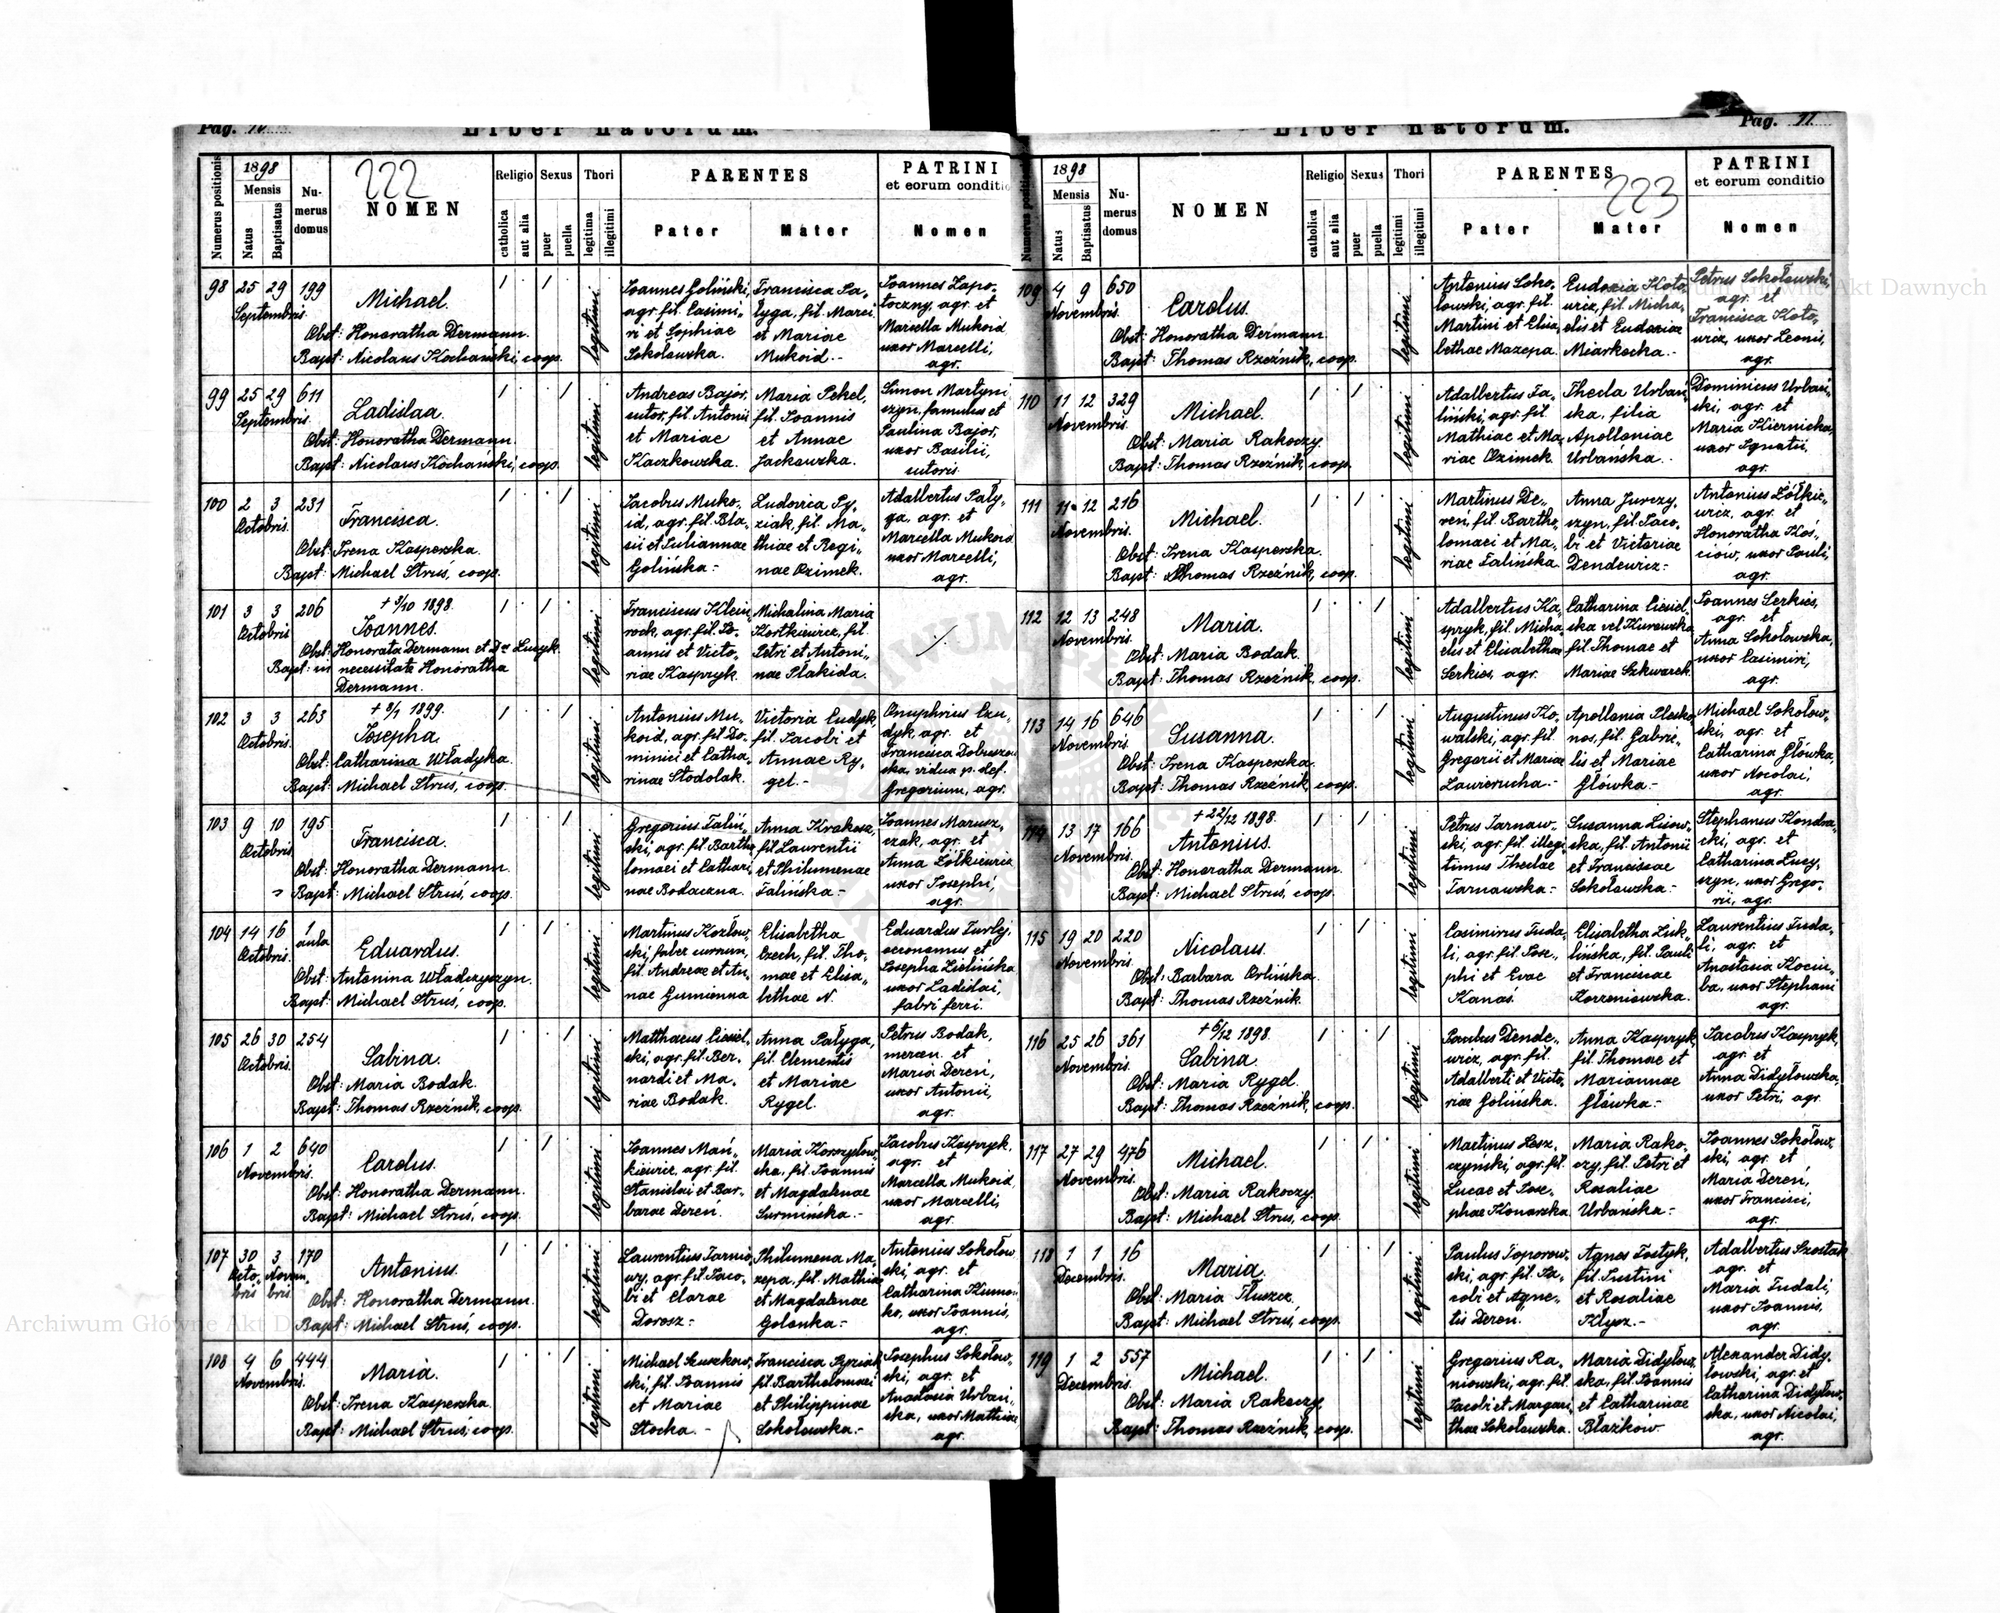 Pag.
Liber natorum.
222
Numerus positionis
1898
Mensis
Natus
Baptisatus
Numerus domus
NOMEN
Religio
catholica
aut alia
Sexus
puer
puella
Thori
legitima
illegitimi
PARENTES
Pater
Mater
PATRINI
et eorum conditio
Nomen
98 25 29 199
Septembris
Michael.
Obst: Honoratha Dermann.
Bapt: Nicolaus Kochański, coop.
legitimi
Joannes Goliński,
agr. fil. Casimi-
ri et Sophiae
Sokołowska.
Francisca Pa-
łyga, fil. Marci
et Mariae
Mukoid.-
Joannes Zapo-
toczny, agr. et
Marcella Mukoid
uxor Marcelli,
agr.
99 25 29 611
Septembris.
Ladislaa.
Obst: Honoratha Dermann.
Bapt: Nicolaus Kochański, coop.
legitimi
Andreas Bajor,
sutor, fil. Antonii
et Mariae
Kaczkowska.
Maria Pekel,
fil. Joannis
et Annae
Jackowska.
Simon Martyni
szyn, famulus et
Paulina Bajor,
uxor Basilii,
sutoris.
100 2 3 231
Octobris.
Francisca.
Obst: Irena Kasperska.
Bapt: Michael Struś, coop.
legitimi
Jacobus Muko-
id, agr. fil. Bla-
sii et Juliannae
Golińska.-
Ludovica Py-
ziak, fil. Ma-
thiae et Regi-
nae Ozimek.
Adalbertus Pały-
ga, agr. et
Marcella Mukoid
uxor Marcelli,
agr.
101 3 3 206
Octobris
+ 3/10 1898.
Joannes.
Obst: Honorata Dermann et Dr Luszyk.
Bapt: in necessitate Honoratha
Dermann.
legitimi
Franciscus Klein-
rok, agr. fil. Jo-
annis et Victo-
riae Kaspryk.
Michalina Maria
Kortkiewicz, fil.
Petri et Antoni-
nae Płakida.
102 3 3 263
Octobris.
+ 8/1 1899.
Josepha.
Obst: Catharina Władyka.
Bapt: Michael Struś, coop.
legitimi
Antonius Mu-
koid, agr. fil. Do-
minici et Catha-
rinae Stodolak.
Victoria Cudyk,
fil. Jacobi et
Annae Ry-
gel.-
Onuphrius Czu-
dyk, agr. et
Francisca
vidua p. def.
Gregorium, agr.
103 9 10 195
Octobris
Francisca.
Obst: Honoratha Dermann.
Bapt: Michael Struś, coop.
legitimi
Gregorius Faliń-
ski, agr. fil. Bartho-
lomaei et Cathari-
nae Bodaczna.
Anna Krakosz,
fil. Laurentii
et Philumenae
Falińska.-
Joannes Marusz-
czak, agr. et
Anna Żółkiewicz
uxor Josephi,
agr.
104 14 16 1
aula
Octobris.
Eduardus.
Obst: Antonina Władczyszyn.
Bapt: Michael Struś, coop.
legitimi
Martinus Kozłow-
ski, faber currum,
fil. Andreae et An-
nae Gumienna
Elisabetha
Czech, fil. Tho-
mae et Elisa-
bethae N.
Eduardus
oeconomus et
Josepha Zielińska
uxor Ladislai,
fabri ferri.
105 26 30 254
Octobris.
Sabina.
Obst: Maria Bodak.
Bapt: Thomas Rzeźnik, coop.
legitimi
Matthaeus Ciesiel-
ski, agr. fil. Ber-
nardi et Ma-
riae Bodak.
Anna Pałyga,
fil. Clementis
et Mariae
Rygel.
Petrus Bodak,
mercen. et
Maria Dereń,
uxor Antonii,
agr.
106 1 2 640
Novembris.
Carolus.
Obst: Honoratha Dermann.
Bapt: Michael Struś, coop.
legitimi
Joannes Mań-
kiewicz, agr. fil.
Stanislai et Bar-
barae Dereń.
Maria Korszyłow-
ska, fil. Joannis
et Magdalenae
Surmińska.-
Jacobus Kaspryk,
agr. et
Marcella Mukoid
uxor Marcelli,
agr.
107 30 3 170
Octo- Novem-
bris bris.
Antonius.
Obst: Honoratha Dermann.
Bapt: Michael Struś, coop.
legitimi
Laurentius Tarno-
wy, agr. fil. Jaco-
bi et Clarae
Dorosz.-
Philumena Ma-
zepa, fil. Mathiae
et Magdalenae
Golonka.-
Antonius Sokołow-
ski, agr. et
Catharina
uxor Joannis,
agr.
108 4 6 444
Novembris.
Maria.
Obst: Irena Kasperska.
Bapt: Michael Struś, coop.
legitimi
Michael
ski, fil. Joannis
et Mariae
Stocka.-
Francisca Pyziak
fil. Bartholomaei
et Philippinae
Sokołowska.-
Josephus Sokołow-
ski, agr. et
Anastasia Urbań-
ska, uxor Mathiae
agr.
Liber natorum.
Pag. 11.
223
Numerus positionis
1898
Mensis
Natus
Baptisatus
Numerus domus
NOMEN
Religio
catholica
aut alia
Sexus
puer
puella
Thori
legitimi
illegitimi
PARENTES
Pater
Mater
PATRINI
et eorum conditio
Nomen
109 4 9 650
Novembris.
Carolus.
Obst: Honoratha Dermann.
Bapt: Thomas Rzeźnik, coop.
legitimi
Antonius Soko-
łowski, agr. fil.
Martini et Elisa-
bethae Mazepa.
Eudoxia Koto-
wicz, fil. Micha-
elis et Eudoxiae
Miarkocka.-
Petrus Sokołowski,
agr. et
Francisca Koto-
wicz, uxor Leonis,
agr.
110 11 12 329
Novembris.
Michael.
Obst: Maria Rakoczy.
Bapt: Thomas Rzeźnik, coop.
legitimi
Adalbertus Fa-
liński, agr. fil.
Mathiae et Ma-
riae Ozimek.
Thecla Urbań-
ska, filia
Apolloniae
Urbańska.
Dominicus Urbań-
ski, agr. et
Maria Kiernicka,
uxor Ignatii,
agr.
111 11 12 216
Novembris.
Michael.
Obst: Irena Kasperska.
Bapt: Thomas Rzeźnik, coop.
legitimi
Martinus De-
reń, fil. Bartho-
lomaei et Ma-
riae Falińska
Anna Jurczy-
szyn, fil. Jaco-
bi et Victoriae
Dendewicz.-
Antonius Żółkie-
wicz, agr. et
Honoratha Koś-
ciów, uxor Pauli,
agr.
112 12 13 248
Novembris.
Maria.
Obst: Maria Bodak.
Bapt: Thomas Rzeźnik, coop.
legitimi
Adalbertus Ka-
spryk, fil. Micha-
elis et Elisabethae
Serkies, agr.
Catharina Ciesiel-
ska vel Kurowska
fil. Thomae et
Mariae Szkwarek.
Joannes Serkies,
agr. et
Anna Sokołowska,
uxor Casimiri,
agr.
113 14 16 646
Novembris.
Susanna.
Obst: Irena Kasperska.
Bapt: Thomas Rzeźnik, coop.
legitimi
Augustinus Ko-
walski, agr. fil.
Gregorii et Mariae
Ławierucha.-
Apollonia Plesko-
nos, fil. Gabrie-
lis et Mariae
Główka.-
Michael Sokołow-
ski, agr. et
Catharina Główka,
uxor Nicolai,
agr.
114 13 17 166
Novembris.
+ 22/12 1898.
Antonius.
Obst: Honoratha Dermann.
Bapt: Michael Struś, coop.
legitimi
Petrus Tarnaw-
ski, agr. fil. illegi-
timus Theclae
Tarnawska.-
Susanna Lisow-
ska, fil. Antonii
et Franciscae
Sokołowska.-
Stephanus Kondra-
cki, agr. et
Catharina Lucy-
szyn, uxor Grego-
rii, agr.
115 19 20 220
Novembris.
Nicolaus.
Obst: Barbara Orlińska.
Bapt: Thomas Rzeźnik.
legitimi
Casimirus Fuda-
li, agr. fil. Jose-
phi et Evae
Kanas.
Elisabetha Żuk-
lińska, fil. Pauli
et Franciscae
Korzeniowska.
Laurentius Fuda-
li, agr. et
Anastasia Kociu-
ba, uxor Stephani
agr.
116 25 26 361
Novembris.
+ 6/12 1898.
Sabina.
Obst: Maria Rygel.
Bapt: Thomas Rzeźnik, coop.
legitimi
Paulus Dende-
wicz, agr. fil.
Adalberti et Victo-
riae Golińska.
Anna Kaspryk,
fil. Thomae et
Mariannae
Główka.-
Jacobus Kaspryk,
agr. et
Anna Didyłowska,
uxor Petri, agr.
117 27 29 476
Novembris.
Michael.
Obst: Maria Rakoczy.
Bapt: Michael Struś, coop.
legitimi
Martinus Lesz-
czyński, agr. fil.
Lucae et Jose-
phae Konarska.
Maria Rako-
czy, fil. Petri et
Rosaliae
Urbańska.-
Joannes Sokołow-
ski, agr. et
Maria Dereń,
uxor Francisci,
agr.
118 1 1 16
Decembris.
Maria.
Obst: Maria Tłuszcz.
Bapt: Michael Struś, coop.
legitimi
Paulus Toporow-
ski, agr. fil. Ja-
cobi et Agne-
tis Deren.
Agnes Fostyk,
fil. Justini
et Rosaliae
Kłysz.-
Adalbertus Szostak
agr. et
Maria Fudali,
uxor Joannis,
agr.
119 1 2 557
Decembris.
Michael.
Obst: Maria Rakoczy.
Bapt: Thomas Rzeźnik, coop.
legitimi
Gregorius Ra-
niowski, agr. fil.
Jacobi et Margari-
thae Sokołowska.
Maria Didyłow-
ska, fil. Joannis
et Catharinae
Błażków.
Alexander Didy-
łowski, agr. et
Catharina Didyłow-
ska, uxor Nicolai,
agr.
Archiwum Główne Akt Dawnych